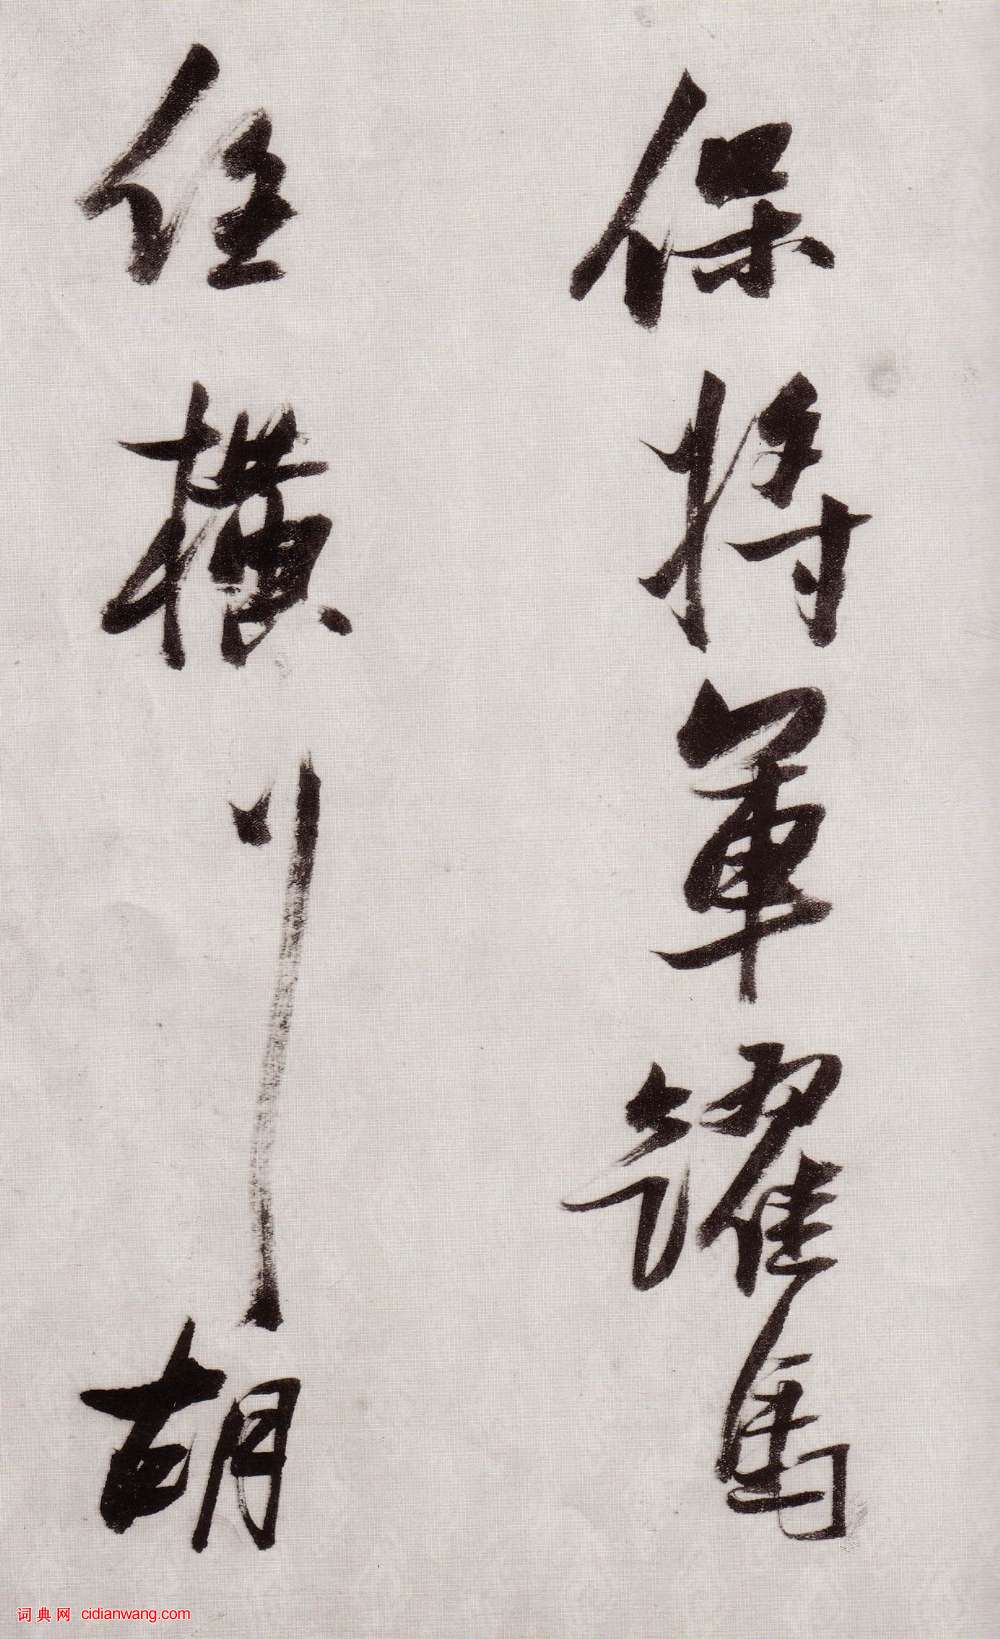 保将軍躍馬
任横刂胡
词典网 cidianwang.com